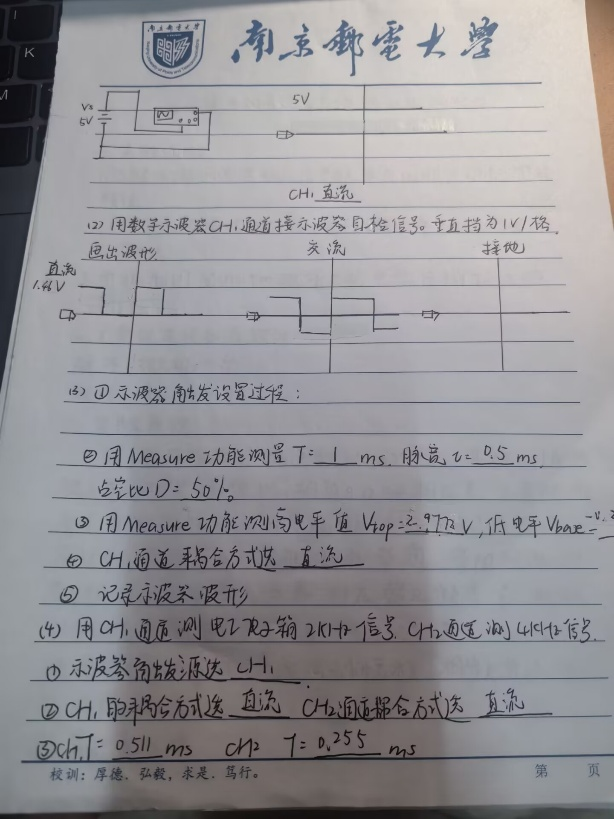 南京邮电大学
南京郵電大學
I
K
M
Vs
5V
5V
CH₁ 直流
(2) 用数字示波器CH₁通道接示波器自检信号。垂直挡为1V/格.
画出波形 交流 接地
直流
1.46V
(3) ① 示波器触发设置过程：
② 用Measure功能测量T=1 ms. 脉宽τ=0.5 ms.
占空比D=50%。
③ 用Measure功能测高电平值Vtop=2.9772V, 低电平Vbase=
④ CH₁通道耦合方式选 直流
⑤ 记录示波器波形
(4) 用CH₁通道测电工电子箱2KHz信号. CH₂通道测4KHz信号.
① 示波器触发源选 CH₁.
② CH₁的耦合方式选 直流 CH2通道耦合方式选 直流
③ CH₁T=0.511 ms CH2 T=0.255 ms
校训：厚德、弘毅，求是、笃行。 第 页